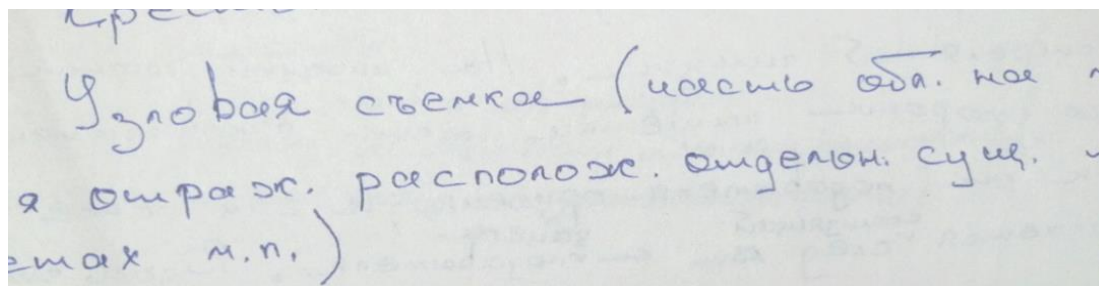 Узловая съемка (часть обл. на
я отраж. располож. отдельн. сущ.
етах м.п.)